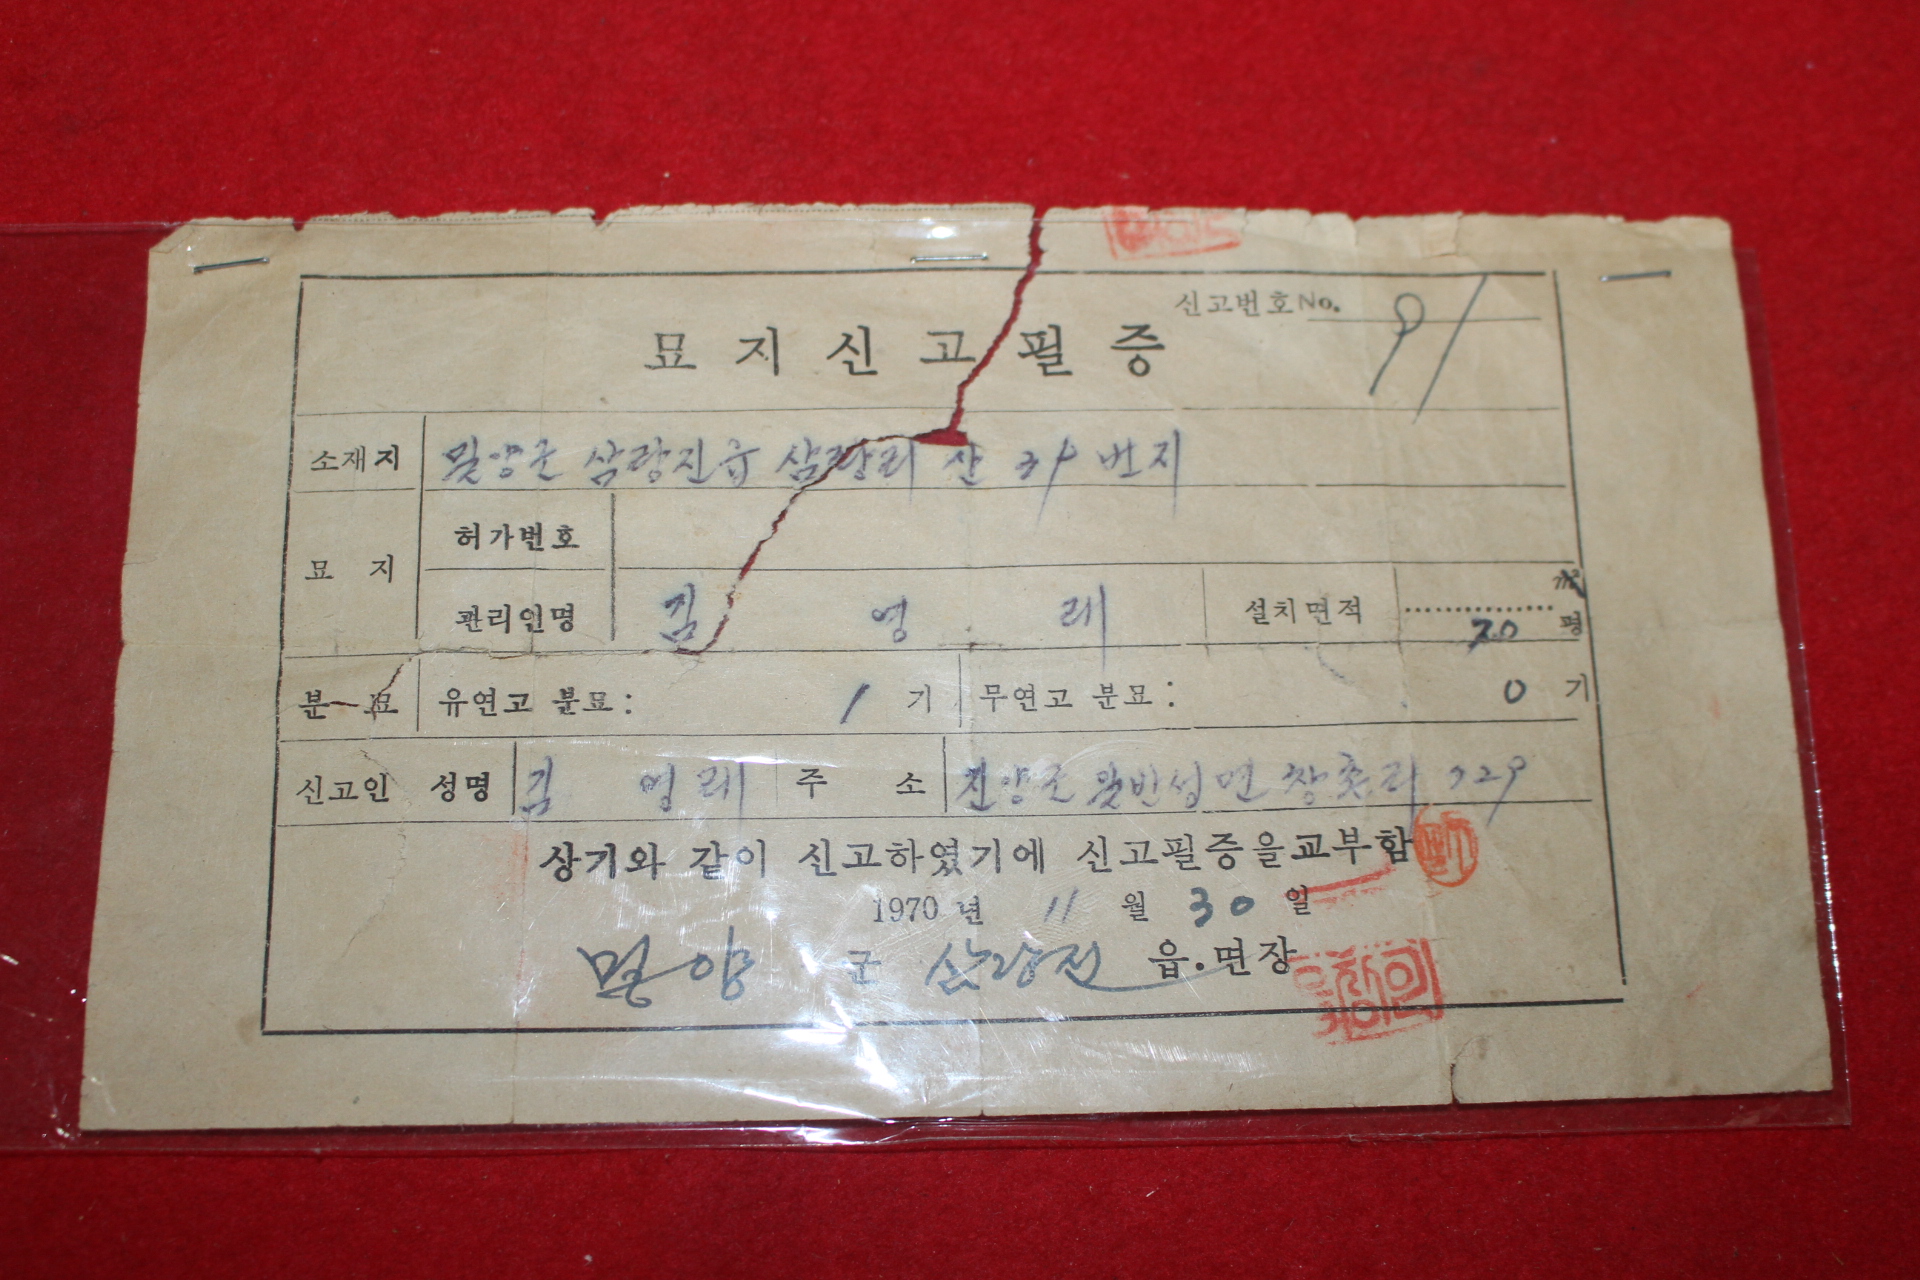 신고번호 No. 91
묘지신고필증
소재지 밀양군 삼랑진읍 삼랑리 산 39 번지
묘지 허가번호
관리인명 김영래 설치면적 ㎡ 20 평
분묘 유연고 분묘: 1 기 무연고 분묘: 0 기
신고인 성명 김영래 주소 진양군 일반성면 창촌리 729
상기와 같이 신고하였기에 신고필증을교부함
1970 년 11 월 30 일
밀양 군 삼랑진 읍.면장